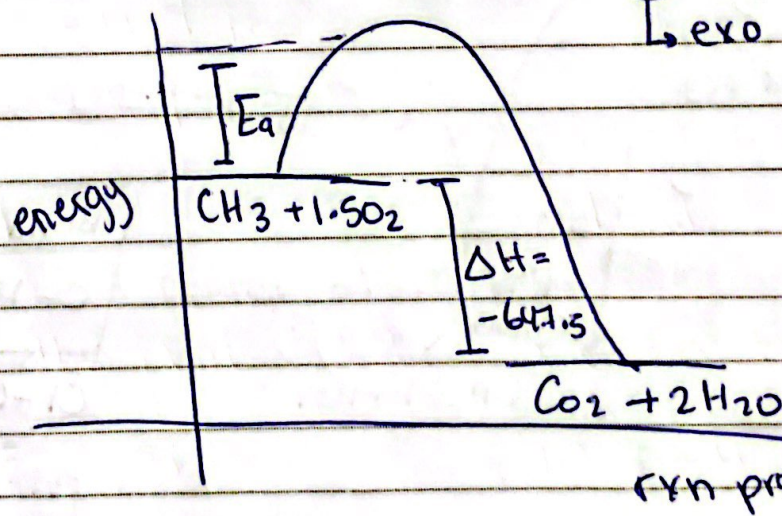 ↳ exo
Ea
energy
CH3 + 1.5O2
ΔH =
-647.5
Co2 + 2H2O
rxn pro